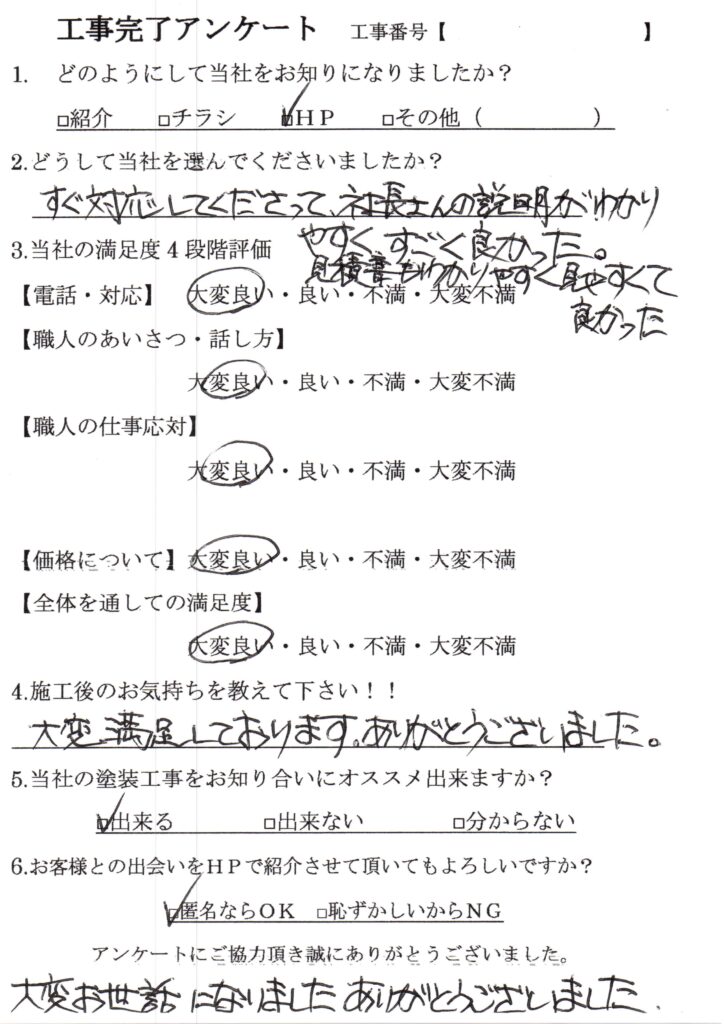 工事完了アンケート 工事番号【 】
1. どのようにして当社をお知りになりましたか？
□紹介 □チラシ ☑HP □その他（ ）
2.どうして当社を選んでくださいましたか？
すぐ対応してくださって、社長さんの説明がわかり
やすく、すごく良かった。
3.当社の満足度４段階評価
見積書もわかりやすく見やすくて
良かった
【電話・対応】 大変良い・良い・不満・大変不満
【職人のあいさつ・話し方】
大変良い・良い・不満・大変不満
【職人の仕事応対】
大変良い・良い・不満・大変不満
【価格について】 大変良い・良い・不満・大変不満
【全体を通しての満足度】
大変良い・良い・不満・大変不満
4.施工後のお気持ちを教えて下さい！！
大変満足しております。ありがとうございました。
5.当社の塗装工事をお知り合いにオススメ出来ますか？
☑出来る □出来ない □分からない
6.お客様との出会いをHPで紹介させて頂いてもよろしいですか？
☑匿名ならOK □恥ずかしいからNG
アンケートにご協力頂き誠にありがとうございました。
大変お世話になりました ありがとうございました.